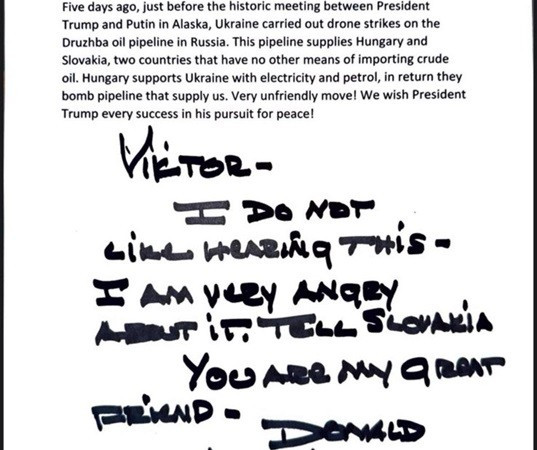 Five days ago, just before the historic meeting between President
Trump and Putin in Alaska, Ukraine carried out drone strikes on the
Druzhba oil pipeline in Russia. This pipeline supplies Hungary and
Slovakia, two countries that have no other means of importing crude
oil. Hungary supports Ukraine with electricity and petrol, in return they
bomb pipeline that supply us. Very unfriendly move! We wish President
Trump every success in his pursuit for peace!
VIKTOR -
I DO NOT
LIKE HEARING THIS -
I AM VERY ANGRY
ABOUT IT. TELL SLOVAKIA
YOU ARE MY GREAT
FRIEND - 
DONALD